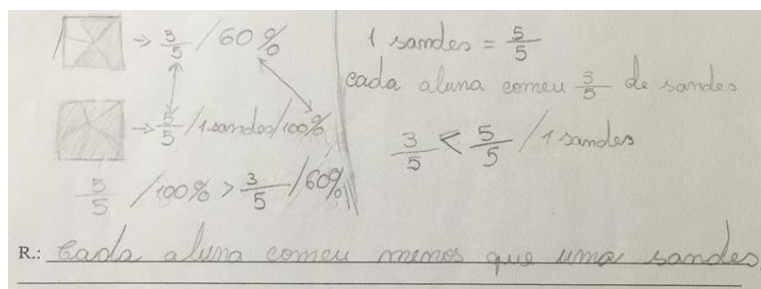 → 3/5 / 60%
→ 5/5 / 1 sandes / 100%
5/5 / 100% > 3/5 / 60%
1 sandes = 5/5
cada aluna comeu 3/5 de sandes
3/5 < 5/5 / 1 sandes
R.: Cada aluna comeu menos que uma sandes